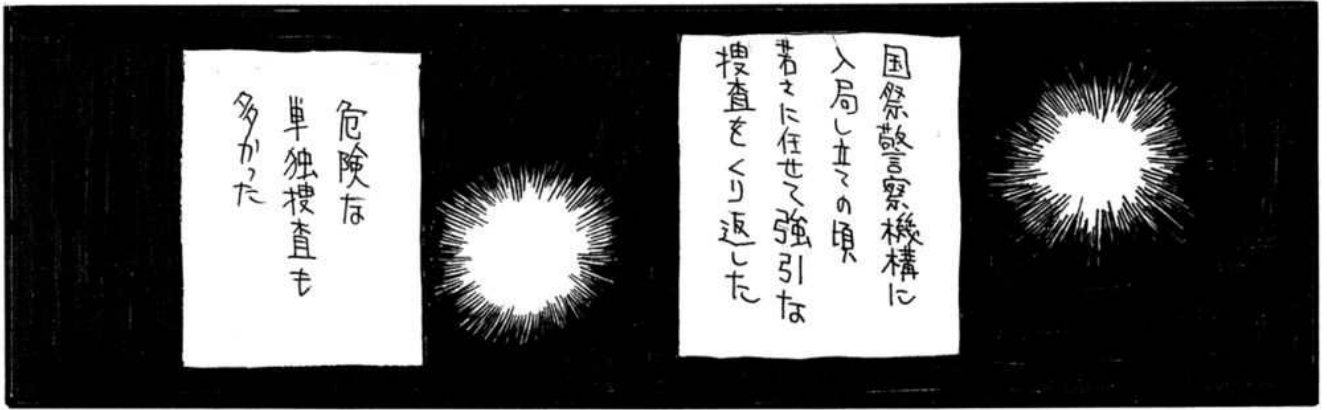 国祭警察機構に
入局し立ての頃
若さに任せて強引な
捜査をくり返した
危険な
単独捜査も
多かった